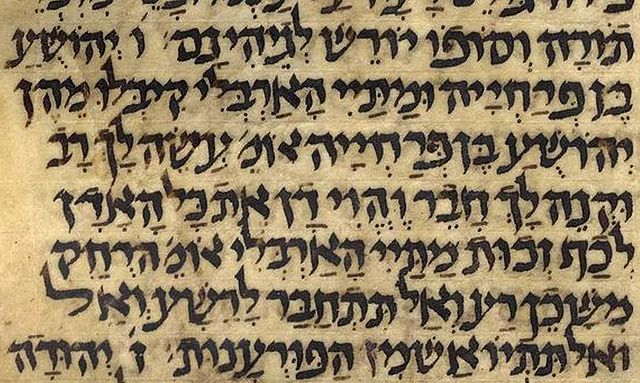 תורה וסופו יורש לגיהינם׳ ו יהושע
בן פרחייה ומתיי הארבלי קיבלו מהן
יהושע בן פרחייה אומ׳ עשה לך רב
וקנה לך חבר והוי דן את כל האדן
לכף זכות מתיי הארבלי אומ׳ הרחק
משכן רע ואל תתחבר לרשע ואל
ואל תתייאש מן הפורענות׳ ז יהודה